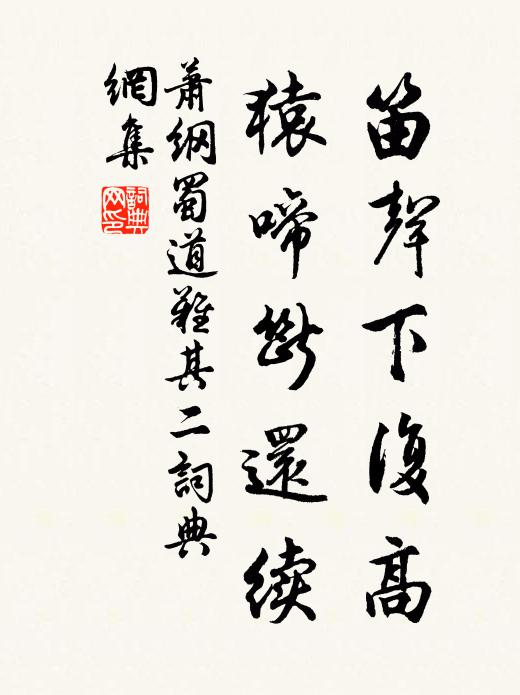 笛聲下復高
猿啼斷還續
蕭綱蜀道難其二詞典
網集
詞典
网印